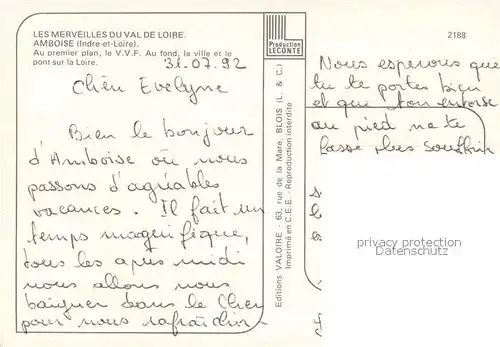 LES MERVEILLES DU VAL DE LOIRE.
AMBOISE (Indre-et-Loire).
Au premier plan, le V.V.F. Au fond, la ville et le
pont sur la Loire.
31.07.92
Chèu Evelyne
Bien le bonjour
d'Amboise où nous
passons d'agréables
vacances. Il fait un
temps magnifique,
tous les après midi
nous allons nous
baigner dans le Cher
pour nous rafraichir.
Production
LECONTE
Editions VALOIRE - 63, rue de la Mare, BLOIS (L. & C.)
Imprimé en C.E.E. - Reproduction interdite
2188
Nous esperons que
tu te portes bien
et que ton entorse
au pied ne te
fasse plus souffrir
privacy protection
Datenschutz